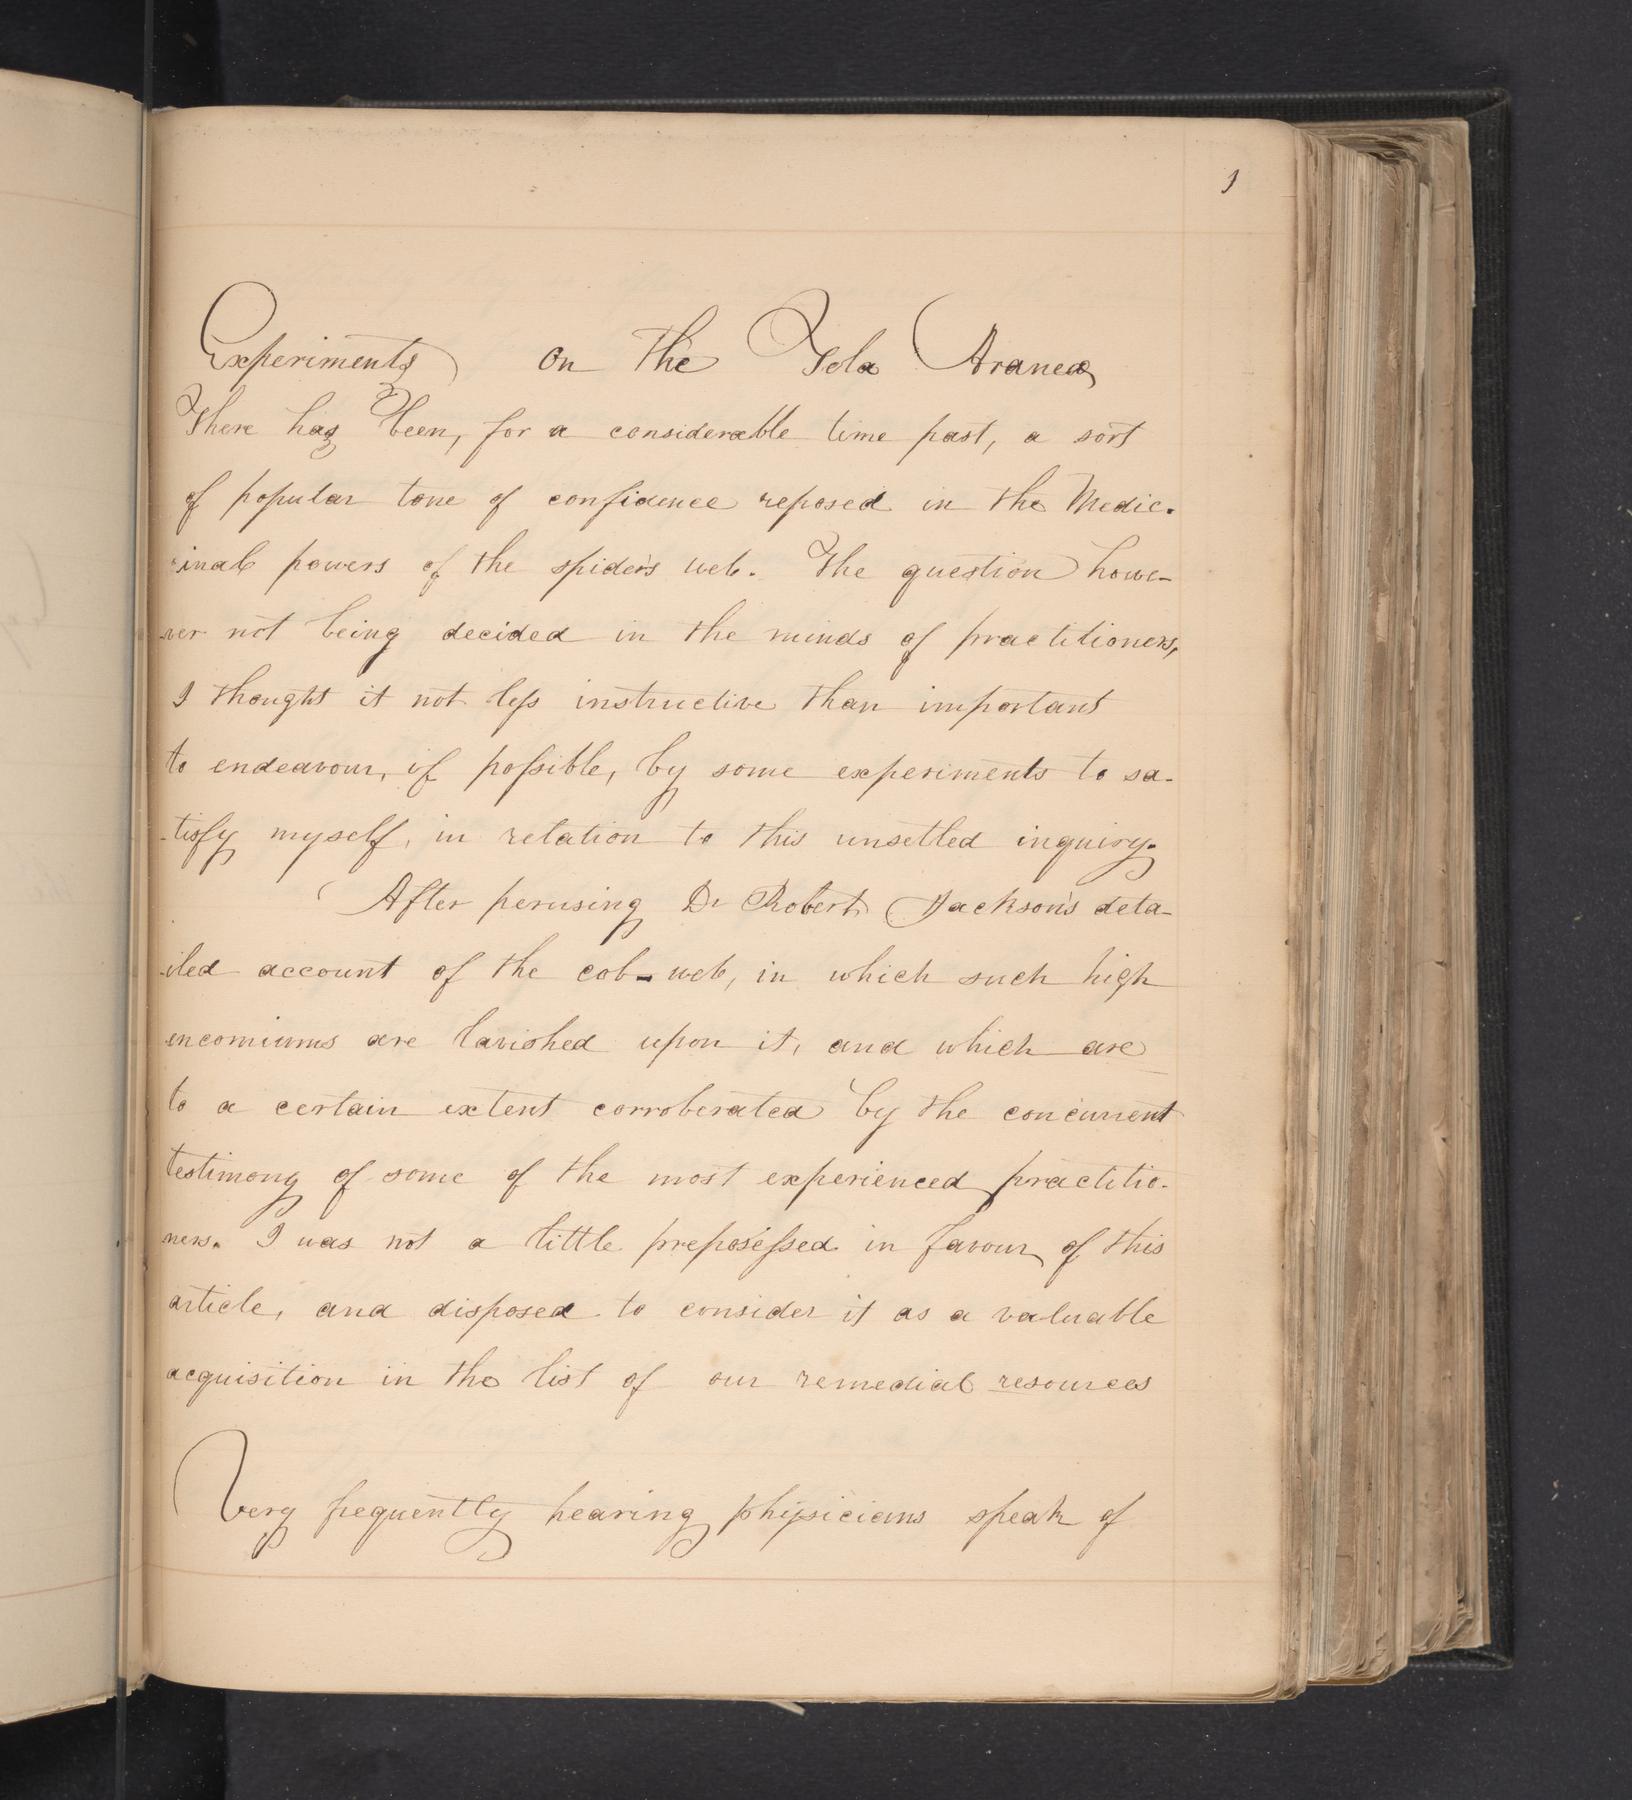 1
Experiments on the Tela Aranea
There has been, for a considerable time past, a sort
of popular tone of confidence reposed in the Medic-
-inal powers of the spider's web. The question howe-
-ver not being decided in the minds of practitioners,
I thought it not less instructive than important
to endeavour, if possible, by some experiments to sa-
-tisfy myself, in relation to this unsetled inquiry.
After perusing Dr Robert Jackson's deta-
-iled account of the cob-web, in which such high
encomiums are lavished upon it, and which are
to a certain extent corroberated by the concurrent
testimony of some of the most experienced practitio-
ners. I was not a little preposessed in favour of this
article, and disposed to consider it as a valuable
acquisition in the list of our remedial resources
Very frequently hearing physicians speak of